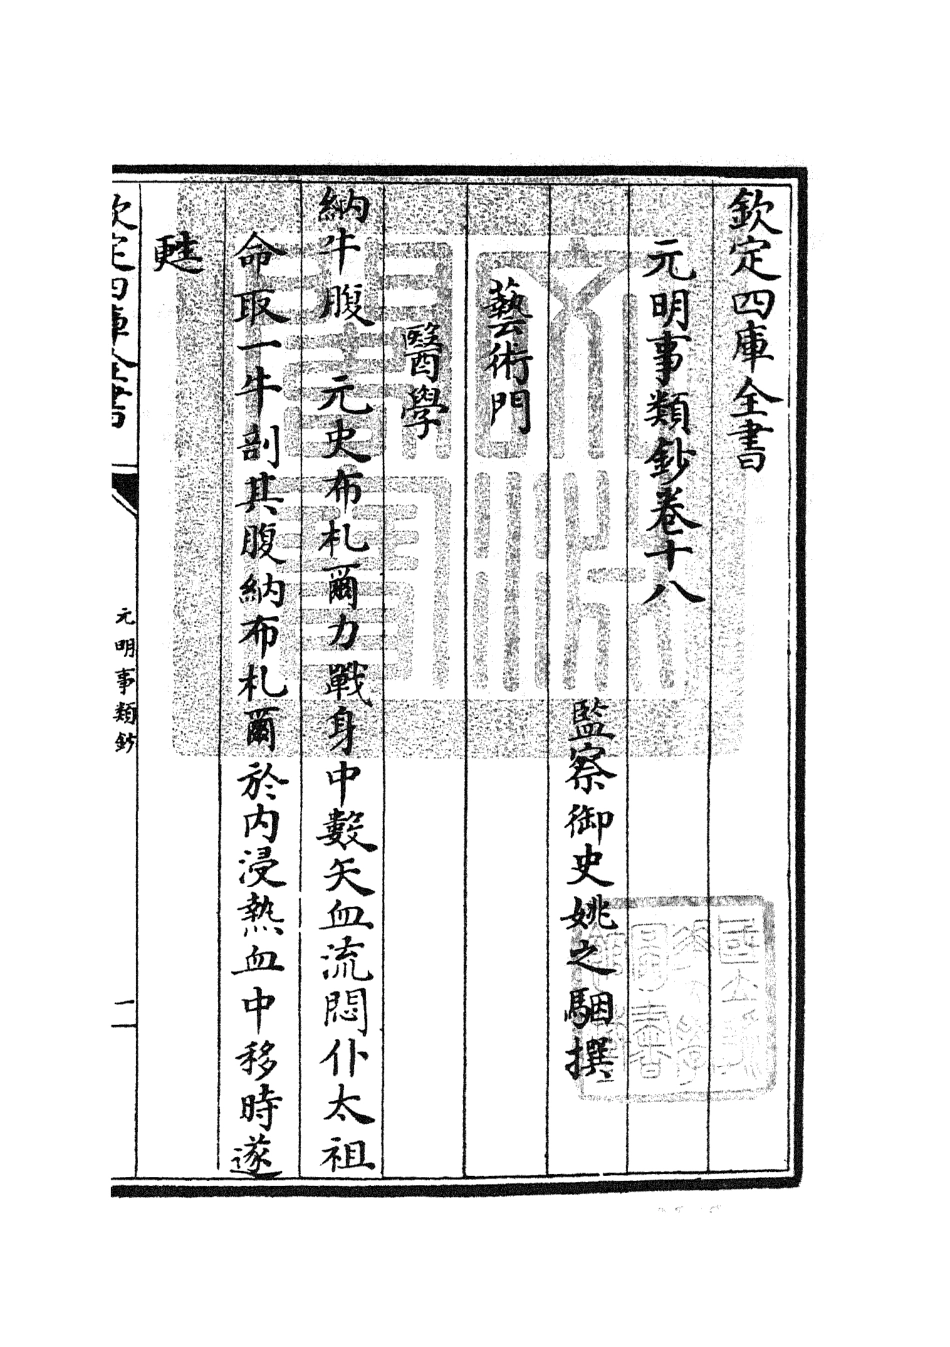 欽定四庫全書
元明事類鈔卷十八
監察御史姚之駰撰
藝術門
醫學
納牛腹　元史布札爾力戰身中數矢血流悶仆太祖
命取一牛剖其腹納布札爾於内浸熱血中移時遂
甦
欽定四庫全書
元明事類鈔